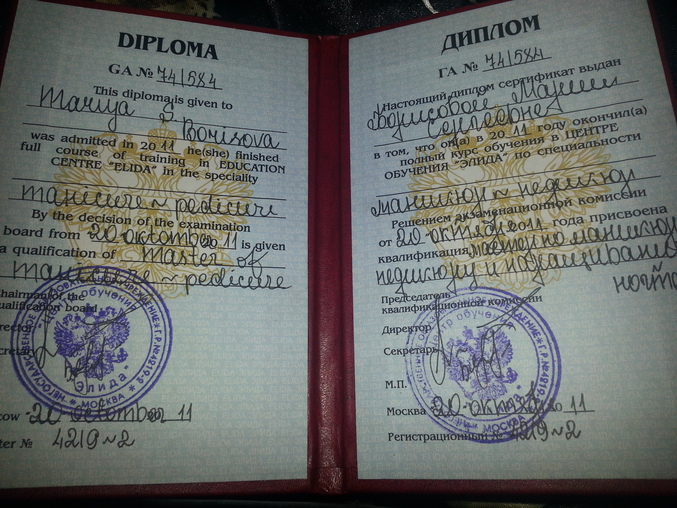 DIPLOMA
GA № 74/584
This diploma is given to
Mariya S
Borisova
was admitted in 20 11 he(she) finished
full course of training in EDUCATION
CENTRE "ELIDA" in the speciality
manicure ~ pedicure
By the decision of the examination
board from 20 octomber 2011 is given
a qualification of master of
manicure ~ pedicure
Chairman of the
qualification board
20 octomber 11
4219~2
ДИПЛОМ
ГА № 74/584
Настоящий диплом сертификат выдан
Борисовой Марии
Сергеевне
в том, что он(а) в 20 11 году окончил(а)
полный курс обучения в ЦЕНТРЕ
ОБУЧЕНИЯ "ЭЛИДА" по специальности
маникюр ~ педикюр
Решением экзаменационной комиссии
от 20 октября 2011 года присвоена
квалификация мастер по маникюру
педикюру и наращиванию
Председатель
квалификационной комиссии
Директор
Секретарь
М.П.
Москва "20 октября 20 11
Регистрационный № 4219~2
"Элида"
МОСКВА